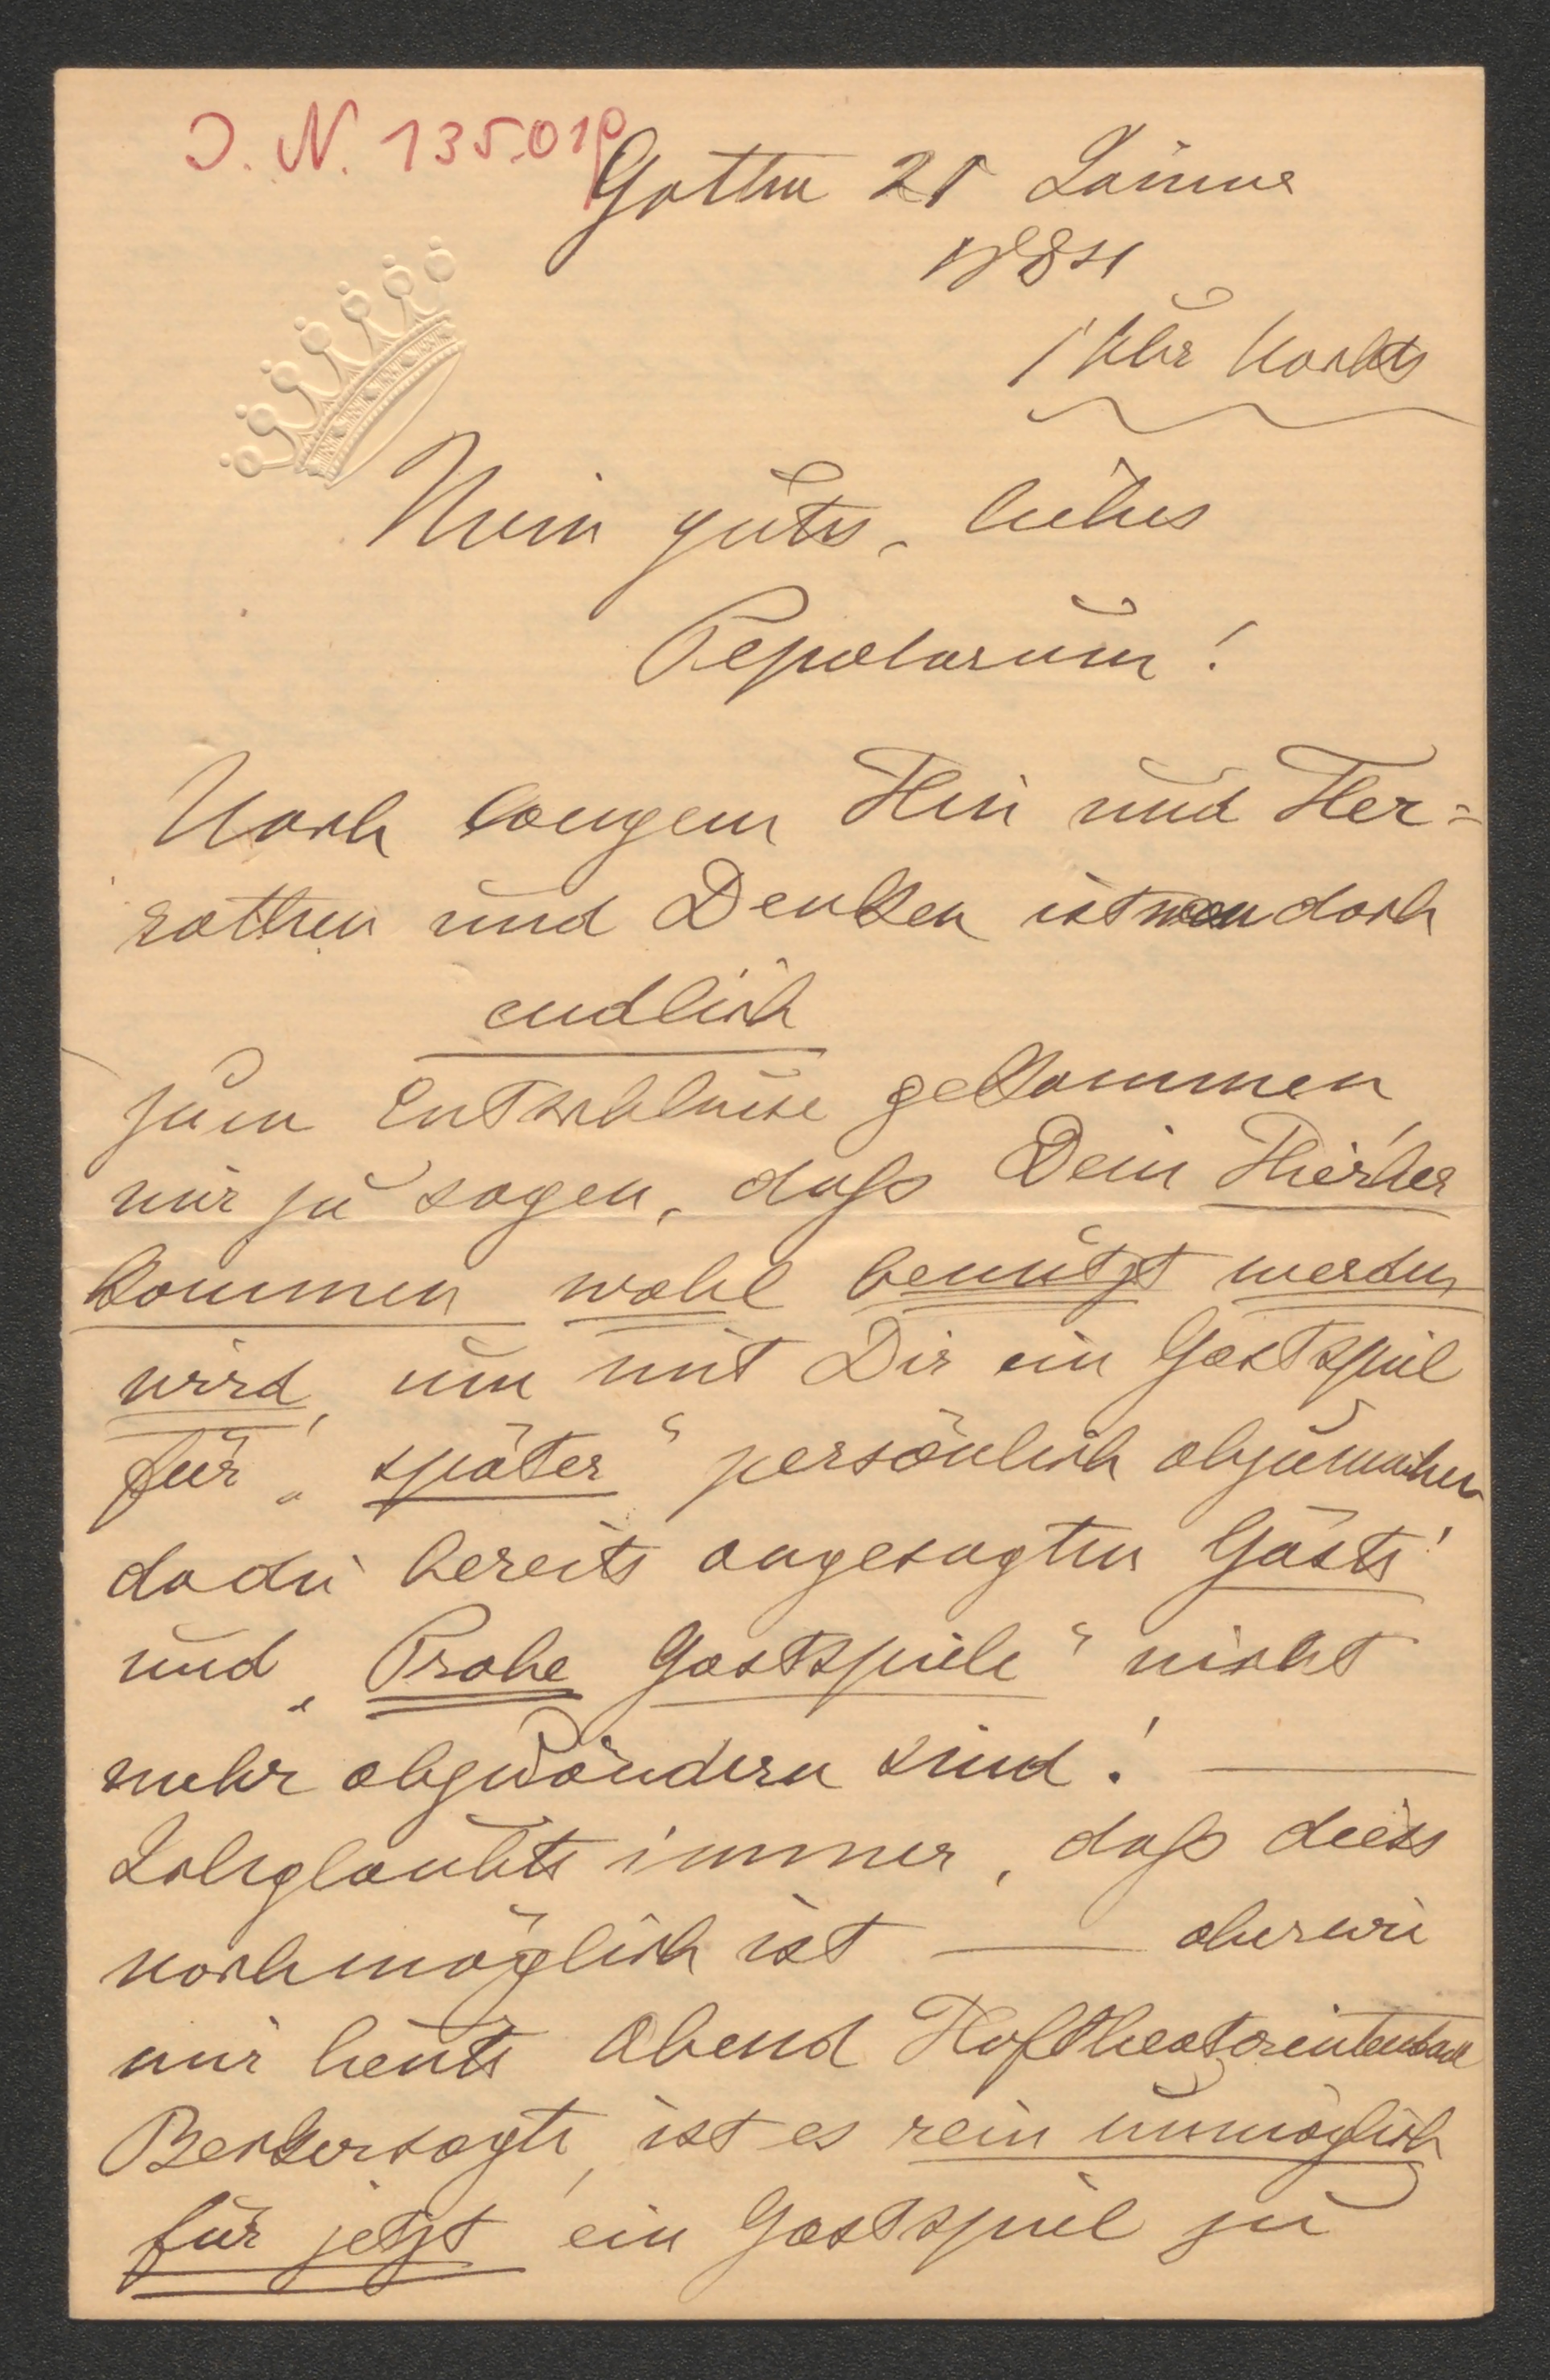 J. N. 135.019
Gotha 21 Jänner
1884
1 Uhr Nachts
Mein gutes, liebes
Pepolarum!
Nach langem Hin und Her=
rathen und Denken ist man doch
endlich
zum Entschlusse gekommen,
mir zu sagen, daß Dein Hierher
kommen wohl benützt werden
wird, um mit Dir ein Gastspiel
für „später“ persönlich abzumachen
da die bereits angesagten Gäste!
und „Probe Gastspiele“ nicht
mehr abzuändern sind! —
Ich glaubte immer, daß dieß
noch möglich ist — aber wie
mir heute Abend Hoftheaterintendant
Becker sagte, ist es rein unmöglich
für jetzt ein Gastspiel zu